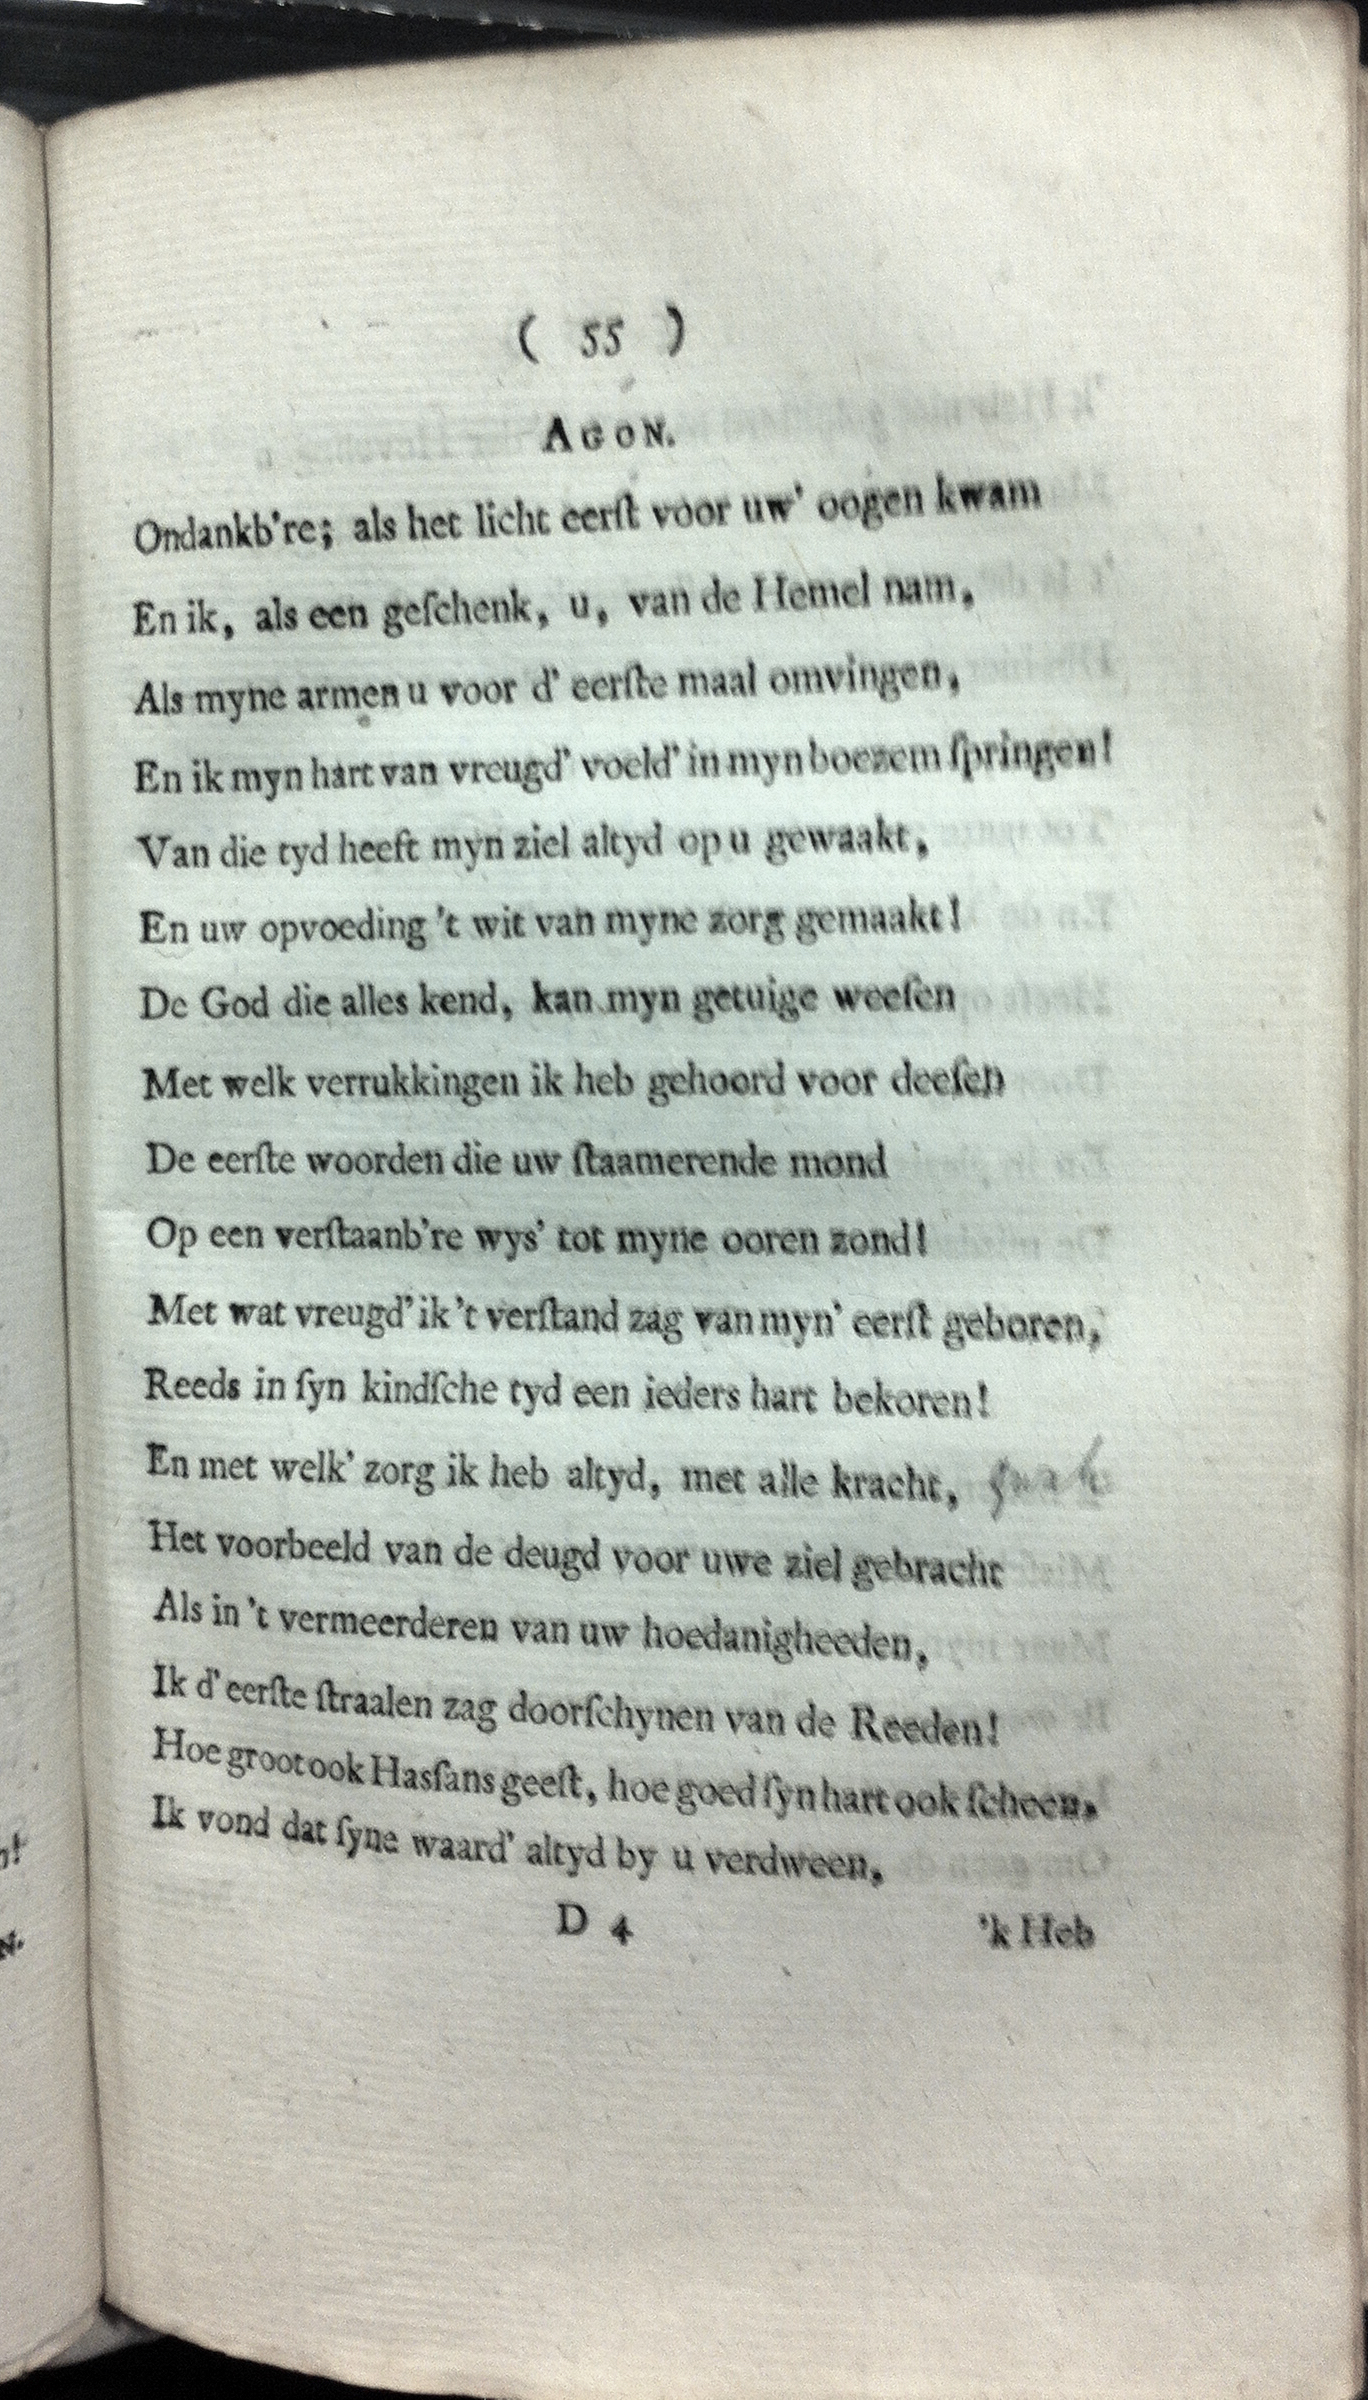 ( 55 )
AGON.
Ondankb're; als het licht eerſt voor uw' oogen kwam
En ik, als een geſchenk, u, van de Hemel nam,
Als myne armen u voor d' eerſte maal omvingen,
En ik myn hart van vreugd' voeld' in myn boezem ſpringen!
Van die tyd heeft myn ziel altyd op u gewaakt,
En uw opvoeding 't wit van myne zorg gemaakt!
De God die alles kend, kan myn getuige weeſen
Met welk verrukkingen ik heb gehoord voor deeſen
De eerſte woorden die uw ſtaamerende mond
Op een verſtaanb're wys' tot myne ooren zond!
Met wat vreugd' ik 't verſtand zag van myn' eerſt geboren,
Reeds in ſyn kindſche tyd een ieders hart bekoren!
En met welk' zorg ik heb altyd, met alle kracht,
Het voorbeeld van de deugd voor uwe ziel gebracht
Als in 't vermeerderen van uw hoedanigheeden,
Ik d' eerſte ſtraalen zag doorſchynen van de Reeden!
Hoe groot ook Hasſans geeſt, hoe goed ſyn hart ook ſcheen,
Ik vond dat ſyne waard' altyd by u verdween,
D 4 'k Heb